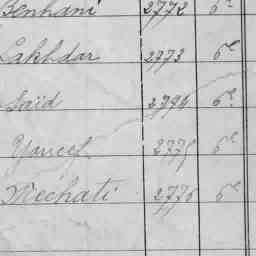 Benhani 2772 6e
Lakhdar 2773 6e
Saïd 2774 6e
Youcef 2775 6e
Mechati 2776 6e